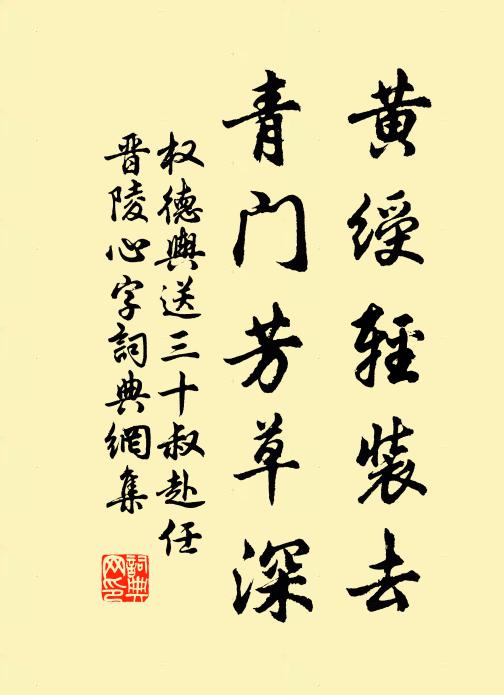 黄綬輕裝去
青门芳草深
权德輿送三十叔赴任
晋陵心字詞典網集
詞典
网印